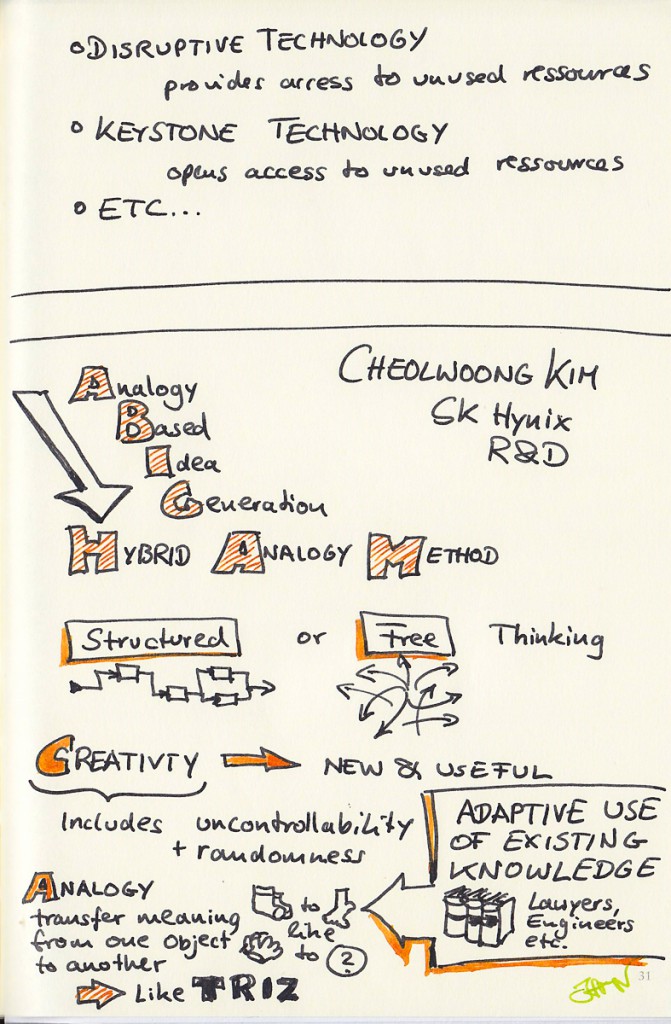 DISRUPTIVE TECHNOLOGY
provides access to unused ressources
KEYSTONE TECHNOLOGY
opens access to unused ressources
ETC...
CHEOLWOONG KIM
SK Hynix
R&D
Analogy
Based
Idea
Generation
HYBRID ANALOGY METHOD
Structured or Free Thinking
CREATIVTY NEW & USEFUL
Includes uncontrollability
+ randomness
ADAPTIVE USE
OF EXISTING
KNOWLEDGE
Lawyers,
Engineers
etc.
ANALOGY
transfer meaning
from one object
to another
to
like
to ?
Like TRIZ
31